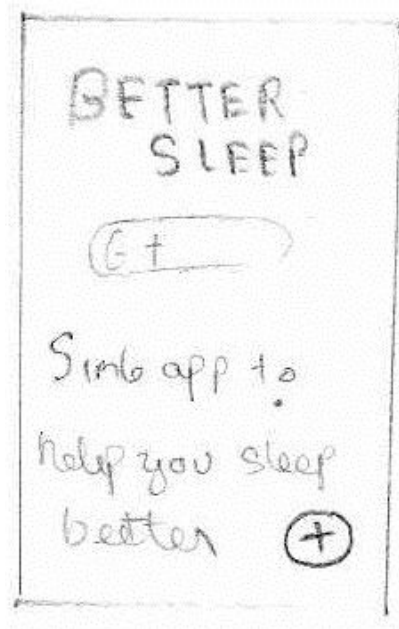 BETTER
SLEEP
G+
Simb app to
help you sleep
better +